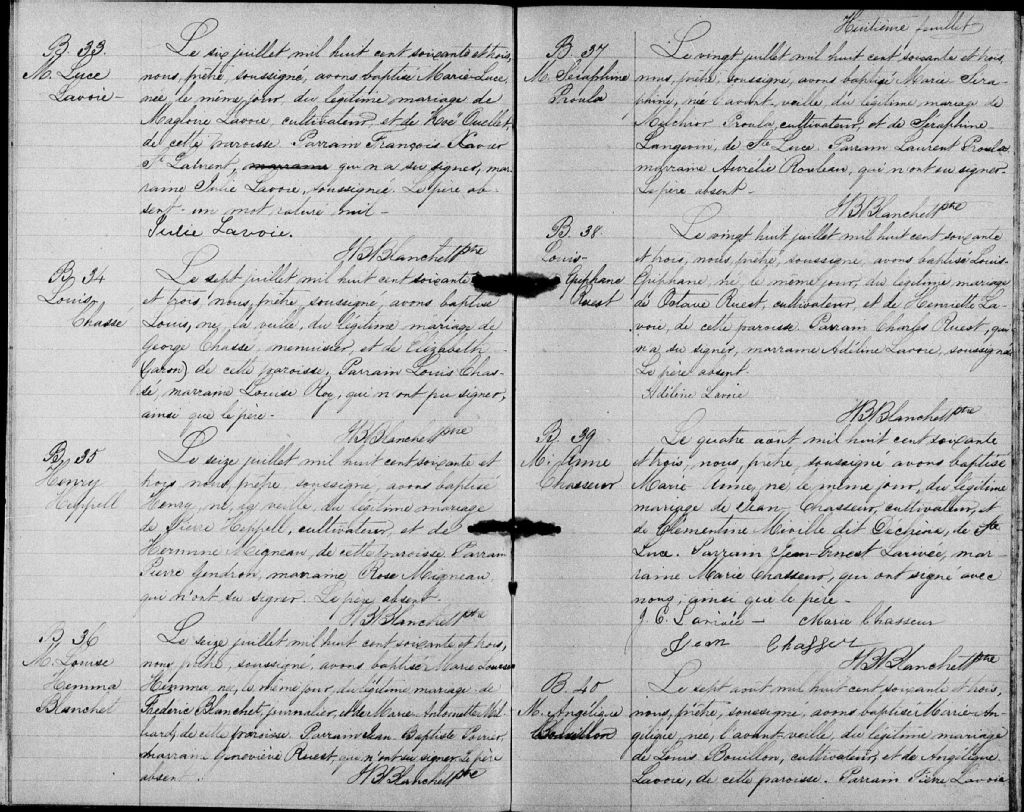 B. 33
M. Luce
Lavoie
Le six juillet mil huit cent soixante et trois,
nous, prêtre, soussigné, avons baptisé Marie-Luce,
née, le même jour, du légitime mariage de
Magloire Lavoie, cultivateur, et de Noë Ouellet,
de cette paroisse. Parrain François Xavier
St Laurent, marraine qui n'a su signer, mar-
raine Julie Lavoie, soussignée. Le père ab-
sent - un mot raturé nul -
Julie Lavoie.
HBBlanchet ptre
B. 34
Louis
Chassé
Le sept juillet mil huit cent soixante
et trois nous, prêtre, soussigné, avons baptisé
Louis, né, la veille, du légitime mariage de
George Chassé, menuisier, et de Elizabeth
(aron) de cette paroisse. Parrain Louis Chas-
sé, marraine Louise Roy, qui n'ont pu signer,
ainsi que le père -
HBBlanchet ptre
B. 35
Henry
Heppell
Le seize juillet mil huit cent soixante et
trois nous prêtre, soussigné, avons baptisé
Henry, né, sa veille, du légitime mariage
de Pierre Heppell, cultivateur, et de
Hermine Migneau, de cette paroisse. Parrain
Pierre Gendron, marraine Rose Migneau,
qui n'ont su signer. Le père absent.
HBBlanchet ptre
B. 36
M. Louise
Hemma
Blanchet
Le seize juillet mil huit cent soixante et trois,
nous, prêtre, soussigné, avons baptisé Marie Louise
Hemma, née, le même jour, du légitime mariage de
Fréderic Blanchet, journalier, et de Marie-Antoinette
de cette paroisse. Parrain Jean-Baptiste Poirier,
marraine Geneviève Ruest, qui n'ont su signer. Le père
absent.
HBBlanchet ptre
Huitième feuillet
B. 37
M. Séraphine
Proulx
Le vingt juillet mil huit cent soixante et trois,
nous, prêtre, soussigné, avons baptisé Marie Séra-
phine, née l'avant-veille, du légitime mariage de
Melchior Proulx, cultivateur, et de Séraphine
Langevin, de Ste Luce. Parrain Laurent Proulx
marraine Aurélie Rouleau, qui n'ont su signer.
Le père absent -
HBBlanchet ptre
B. 38
Louis-
Epiphane
Ruest
Le vingt juillet mil huit cent soixante
et trois, nous, prêtre, soussigné, avons baptisé Louis-
Epiphane, né, le même jour, du légitime mariage
d'Octave Ruest, cultivateur, et de Henriette La-
voie, de cette paroisse. Parrain Charles Ruest, qui
n'a su signer, marraine Adéline Lavoie, soussignée
Le père absent.
Adéline Lavoie
HBBlanchet ptre
B. 39
M. Anne
Chasseur
Le quatre août mil huit cent soixante
et trois, nous, prêtre, soussigné avons baptisé
Marie-Anne, née le même jour, du légitime
mariage de Jean Chasseur, cultivateur, et
de Clementine Miville dit Dechêne, de Ste
Luce. Parrain Jean-Ernest Larivée, mar-
raine Marie Chasseur, qui ont signé avec
nous, ainsi que le père -
J. E. Larivée - Marie Chasseur
Jean Chasseur
HBBlanchet ptre
B. 40
M. Angélique
Bouillon
Le sept août mil huit cent soixante et trois,
nous, prêtre, soussigné, avons baptisé Marie-An-
gélique née, l'avant-veille, du légitime mariage
de Louis Bouillon, cultivateur, et de Angélique
Lavoie, de cette paroisse. Parrain Pierre Lavoie